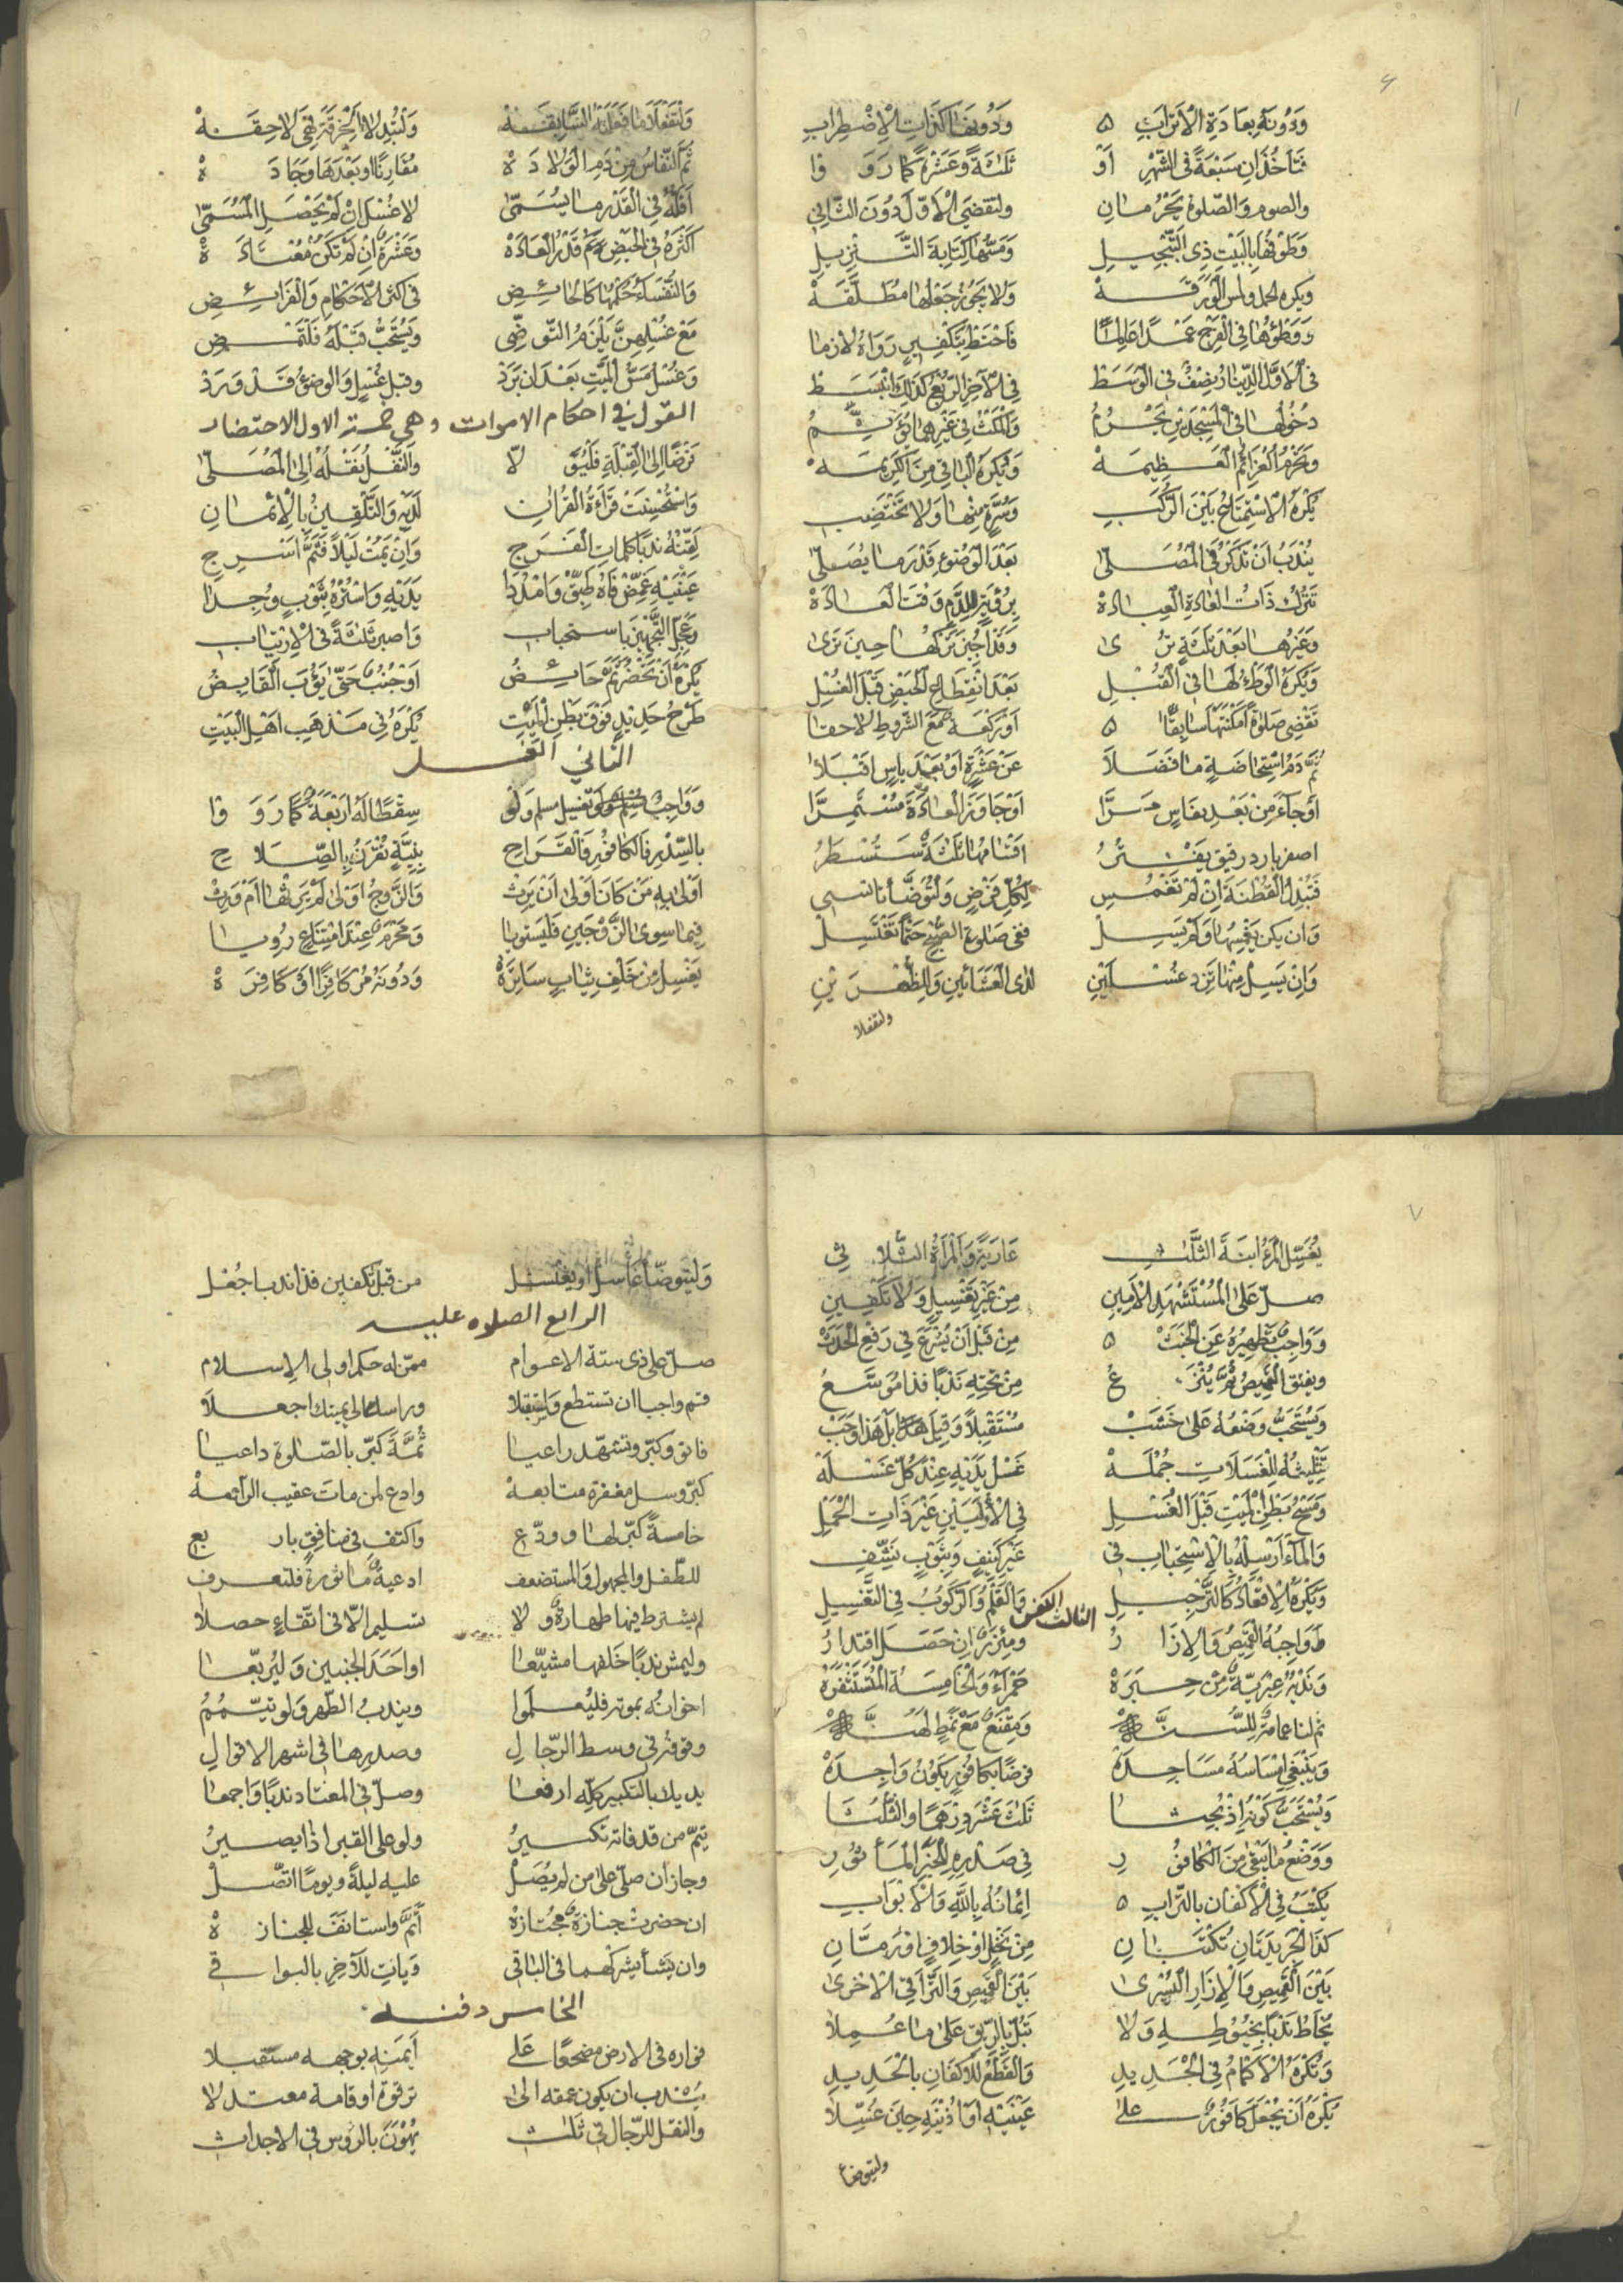 وَدُونَهُ بِعَادَةِ الْأَتْرَابِ وَدُونَهَا كَذَاتِ الْإِضْطِرَابِ
فَتَأخُذَانِ سَبْعَةً فِي الشَّهْرِ أَوْ ثَلٰثَةً وَعَشْرَةً كَمَا رَوَوْا
والصوم والصلوة يَحْرُمانِ ولتقضي الأوّل دُونَ الثَّانِي
وَطَوْفُهَا بِالبَيْتِ ذِي التَّبْجِيلِ وَمَسُّهَا كِتَابَةَ التَّنْزِيلِ
ويكره الحمل ولمس الوَرَقَهْ وَلا يَجُوزُ جَعْلُهَا مُطَلَّقَهْ
وَوَطْؤُهَا فِي الْفَرْجِ عَمْدًا عَالِمًا فَاحْتَطْ بِتَكْفِيرٍ رَوَاهُ لازما
فِي الْأَوَّلِ الدِّينَارُ نِصْفٌ فِي الْوَسَطْ فِي الْآخِرِ الرُّبْعُ كَذٰلِكَ انْبَسَطْ
دُخُولُهَا فِي الْمَسْجِدَيْنِ يَحْرُمُ وَالْمَكْثُ فِي غَيْرِهِمَا يُؤَثِّمُ
وَتَحْرُمُ الْعَزَائِمُ الْعَظِيمَهْ وَيُكْرَهُ الْبَاقِي مِنَ الْكَرِيمَهْ
يُكْرَهُ الْاسْتِمْتَاعُ بَيْنَ الرُّكَبِ وَسُرَّةٍ مِنْهَا وَلَا تَخْتَضِبِ
يُنْدَبُ أَنْ تَذْكُرَ فِي الْمُصَلّٰى بَعْدَ الْوُضُوءِ قَدْرَ مَا يُصَلّٰى
تَتْرُكُ ذَاتُ الْعَادَةِ الْعِبَادَهْ بِرُؤْيَةِ الدَّمِ وَقْتَ الْعَادَهْ
وَغَيْرُهَا بَعْدَ ثَلٰثَةٍ تَرٰى وَقَدْ اجُيزَ تَرْكُهَا حِينَ تَرٰى
وَيُكْرَهُ الْوَطْءُ لَهَا فِي الْقُبُلِ بَعْدَ انْقِطَاعِ الْحَيْضِ قَبْلَ الْغُسْلِ
تَقْضِي صَلوةً أَمْكَنَتْهَا سَابِقًا أَوْ رَكْعَةً مَعَ الشُّرُوطِ لَاحِقًا
ثُمَّ دَمُ اسْتِحَاضَةٍ مَا فَضَلَا عَنْ عَشْرَةٍ أَوْ بَعْدَ يَاسٍ اقْبَلَا
أوجَآءَ مِنْ بَعْدِ نِفَاسٍ مَرَّا أَوْ جَاوَزَ الْعَادَةَ مُسْتَمِرَّا
اصفر بارد رقيق يَفْتُرُ اقْسَامُهَا ثَلٰثَةٌ سَتُسْطَرُ
فَتُبْدِلُ الْقُطْنَةَ إِنْ لَمْ تَغْمِسِ لِكُلِّ فَرْضٍ وَلْتَوَضَّأْ
وَان يكن يَغْمِسُهَا وَلَمْ يَسِلْ ففي صَلوةِ الصُّبْحِ حَتْمًا تَغْتَسِلْ
وَإِنْ يَسِلْ مِنْهَا تَزِدْ غُسْلَيْنِ لدى الْعَشَائَيْنِ وَلِلظُّهْرَيْنِ
ولتفعلا
وَلْتَفْعَلَا مَا فَعَلَتْهُ السَّابِقَهْ وَلْتُبْدِلَا الْخِرْقَةَ فَهِيَ لَاحِقَهْ
ثُمَّ النِّفَاسُ مِنْ دَمِ الْوِلَادَهْ مُقَارِنًا اوبَعْدَهَا وَجَادَهْ
أَقَلُّهُ فِي الْقَدْرِ مَا يُسَمّٰى لا غُسْلَ إِنْ لَمْ يَحْصَلِ الْمُسَمّٰى
أَكْثَرُهُ فِي الْحَيْضِ قَدْرُ الْعَادَهْ وَعَشْرَةٌ إِنْ لَمْ تَكُنْ مُعْتَادَهْ
وَالنُّفَسَاءُ حُكْمُهَا كَالحَائِضِ فِي أكثر الْأَحْكَامِ وَالْفَرَائِضِ
مَعْ غُسْلِهِنَّ يَلْزَمُ التَّوَضِّي وَيُسْتَحَبُّ قَبْلَهُ
وَغُسْلُ مَسِّ الْمَيِّتِ بَعْدَ ان بَرَدْ وقبل غُسْلٍ وَالوضوءُ قَدْ وَرَدْ
القول في احكام الاموات وهي خمسة الاول الاحتضار
فَرْضًا إِلَى الْقِبْلَةِ وَالنَّقْلُ يُنْقَلُهُ إِلَى الْمُصَلّٰى
وَاسْتُحْسِنَتْ قَرَآءَةُ الْقُرْاٰنِ لَدَيْهِ وَالتَّلْقِينُ بِالْإِيمَانِ
لَقِّنْهُ نَدْبًا كَلِمَاتِ الْفَرَجِ وَإِنْ يَمُتْ لَيْلًا فَثَمَّ أَسْرِجِ
عَيْنَيْهِ غَمِّضْ فَاهُ طَبِّقْ وَامْدُدَا يَدَيْهِ وَاسْتُرْهُ بِثَوْبٍ وُجِدَا
وَعَجِّلِ التَّجْهِيزَ باستحباب وَاصبر ثَلٰثَةً فِي الْإِرْتِيَابِ
يُكْرَهُ أَنْ تَحْضُرَ ثَمَّ حَائِضُ أَوْ جُنُبٌ حَتّٰى يَؤُبَ الْقَابِضُ
طَرْحُ حَدِيْدٍ فَوْقَ بَطْنِ الْمَيِّتِ يُكْرَهُ فِي مَذْهَبِ أَهْلِ الْبَيْتِ
الثاني الغسل
وَوَاجِبٌ تغسيل مسلم وَلَوْ سِقْطًا لَهُ أَرْبَعَةٌ كَمَا رَوَوْا
بالسِّدْرِ فَالكَافُورِ فَالْقَرَاحِ بِنِيَّةٍ تُقْرَنُ بِالصَّلَاحِ
أَوْلٰى بِهِ مَنْ كَانَ أَوْلٰى أَنْ يَرِثْ وَالزَّوْجُ أَوْلٰى لَمْ يَرِثْهَا أَمْ وَرِثْ
فِيمَا سِوَى الزَّوْجَيْنِ فَلْيَسْتَوِيَا وَمَحْرَمٌ عِنْدَ امْتِنَاعٍ رُوِيَا
يَغْسِلُ مِنْ خَلْفِ ثِيَابٍ سَاتِرَهْ وَدُونَهُ مُرْ كَافِرًا أَوْ كَافِرَهْ
يُغَسِّلُ الْمَرْءُ ابْنَةَ الثَّلٰثِ عَارِيَةً وَالْمَرْأَةُ الثَّلَاثِ
صلّ عَلَى الْمُسْتَشْهَدِ الْأَمِينِ مِنْ غَيْرِ تَغْسِيلٍ وَلَا تَكْفِينِ
وَوَاجِبٌ تَطْهِيرُهُ عَنِ الْخَبَثْ مِنْ قَبْلِ أَنْ يُشْرَعَ فِي رَفْعِ الْحَدَثْ
ويفتق الْقَمِيصُ ثُمَّ يُنْزَعُ مِنْ تَحْتِهِ نَدْبًا فَذَا مُوَسَّعُ
وَيُسْتَحَبُّ وَضْعُهُ عَلٰى خَشَبْ مُسْتَقْبِلًا وَقِيلَ بَلْ هٰذَا وَجَبْ
تَثْلِيثُهُ لِلْغَسَلَاتِ جُمْلَهْ غَسْلُ يَدَيْهِ عِنْدَ كُلِّ غَسْلَهْ
وَمَسْحُ بَطْنِ الْمَيْتِ قَبْلَ الْغُسْلِ فِي الْأَوَّلَيْنِ غَيْرَ ذَاتِ الْحَمْلِ
وَالْمَآءَ أَرْسِلْهُ بِالْإِسْتِحْبَابِ فِي غَيْرِ كَنِيفٍ وَبِثَوْبٍ نَشِّفِ
وَيُكْرَهُ الْإِقْعَادُ كَالتَّرْجِيلِ وَالْقَلْمِ وَالرُّكُوبُ فِي التَّغْسِيلِ
الثالث الكفن
وَاجِبُهُ الْقَمِيصُ وَالْإِزَارُ ومئزرٌ إِنْ حَصَلَ اقْتِدَارُ
وَنَدْبُهُ عِبْرِيَّةٌ مِنْ حِبَرَهْ حَمْرَآءُ وَالْخَامِسَةُ الْمُسْتَثْفِرَهْ
ثم لنا عمامةٌ للسُّنَّهْ وَمِقْنَعٌ مَعْ نَمَطٍ لَهُنَّهْ
وَيَنْبَغِي إِمْسَاسُهُ مَسَاجِدَهْ فرضًا بكافُورٍ يَكُونُ وَاحِدَهْ
وَيُسْتَحَبُّ كَوْنُهُ ثَلٰثَ عَشْرَ دِرْهَمًا والثُّلُثَا
وَوَضْعُ مَا يَبْقٰى مِنَ الْكَافُورِ فِي صَدْرِهِ لِلْخَبَرِ الْمَأْثُورِ
يُكْتَبُ فِي الْأَكْفَانِ بالتُّرَابِ إِيمَانُهُ بِاللّٰهِ وَالْأَبْوَابِ
كَذَا الْجَرِيدَتَانِ تُكْتَبَانِ مِنْ نَخْلٍ أَوْ خِلَافٍ أَوْ رُمَّانِ
بَيْنَ الْقَمِيصِ وَالْإِزَارِ الْيُسْرٰى بَيْنَ الْقَمِيصِ وَالتَّرَاقِي الْأُخْرٰى
يُخَاطُ نَدْبًا بِخُيُوطِهِ وَلَا تُبَلُّ بِالرِّيقِ عَلٰى مَا عُمِلَا
وَتُكْرَهُ الْأَكْمَامُ فِي الْجَدِيدِ وَالْقَطْعُ لِلْأَكْفَانِ بِالْحَدِيدِ
يُكْرَهُ أَنْ يُجْعَلَ كَافُورٌ عَلٰى عَيْنَيْهِ أَوْ أُذْنَيْهِ حِينَ غُسِّلَا
ولتيوضا
وَلْيَتَوَضَّأْ غَاسِلٌ أَوْ يَغْتَسِلْ من قبل تكفين فذا ندبا جُعِلْ
الرابع الصلوه عليه
صلّ على ذى ستة الاعوام ممّن له حكم اولى الاسلام
قم واجبا ان تستطع ورأسه إلى يمينك اجعلا
فانو وكبّر وتشهّد راعيا ثُمَّةَ كبّر بالصّلوة داعيا
كبّر وسل مغفرة متابعهْ وادع لمن مات عقيب الرابعهْ
خامسةً كبّر لها وودّع واكتف في منافقٍ باربع
للطّفل والمجهول والمستضعف ادعيةٌ ماثورةٌ فلتعرف
لم يشترط فيها طهارةٌ ولا تسليم الّا في اتّقاءٍ حصلا
وليمش ندبًا خَلفها مشيّعًا او احَدَ الجنبين وليُربّعا
اخوانُه بموته فليُعلَموا ويندبُ الطّهر ولو تيمّمُ
وقوفُه في وسط الرّجال وصدرها في اشهر الاقوالِ
يديك بالتكبير كلّه ارفعا وصلّ في المعتاد ندبًا واجمعا
يتمّ من قد فاته تكبيرُ ولو على القبر اذا يصيرُ
وجاز ان صلّى على من لم يُصَلْ عليه ليلةً ويومًا اتّصلْ
ان حضرت جنازةٌ مُجتازهْ أَتمَّ واستانَفَ للجنازهْ
وان يَشأ يشركهما في الباقي وَيَاتِ للآخِرِ بالبواقي
الخامس دفنه
فواره في الارض مضجعًا عَلٰى أيمنِه بوجهه مستقبلا
يُندب ان يكون عمقه الى ترقوة او قامة معتدلا
والنقل للرّجال في ثلٰث يَهْوُن بالرؤس في الاجداث